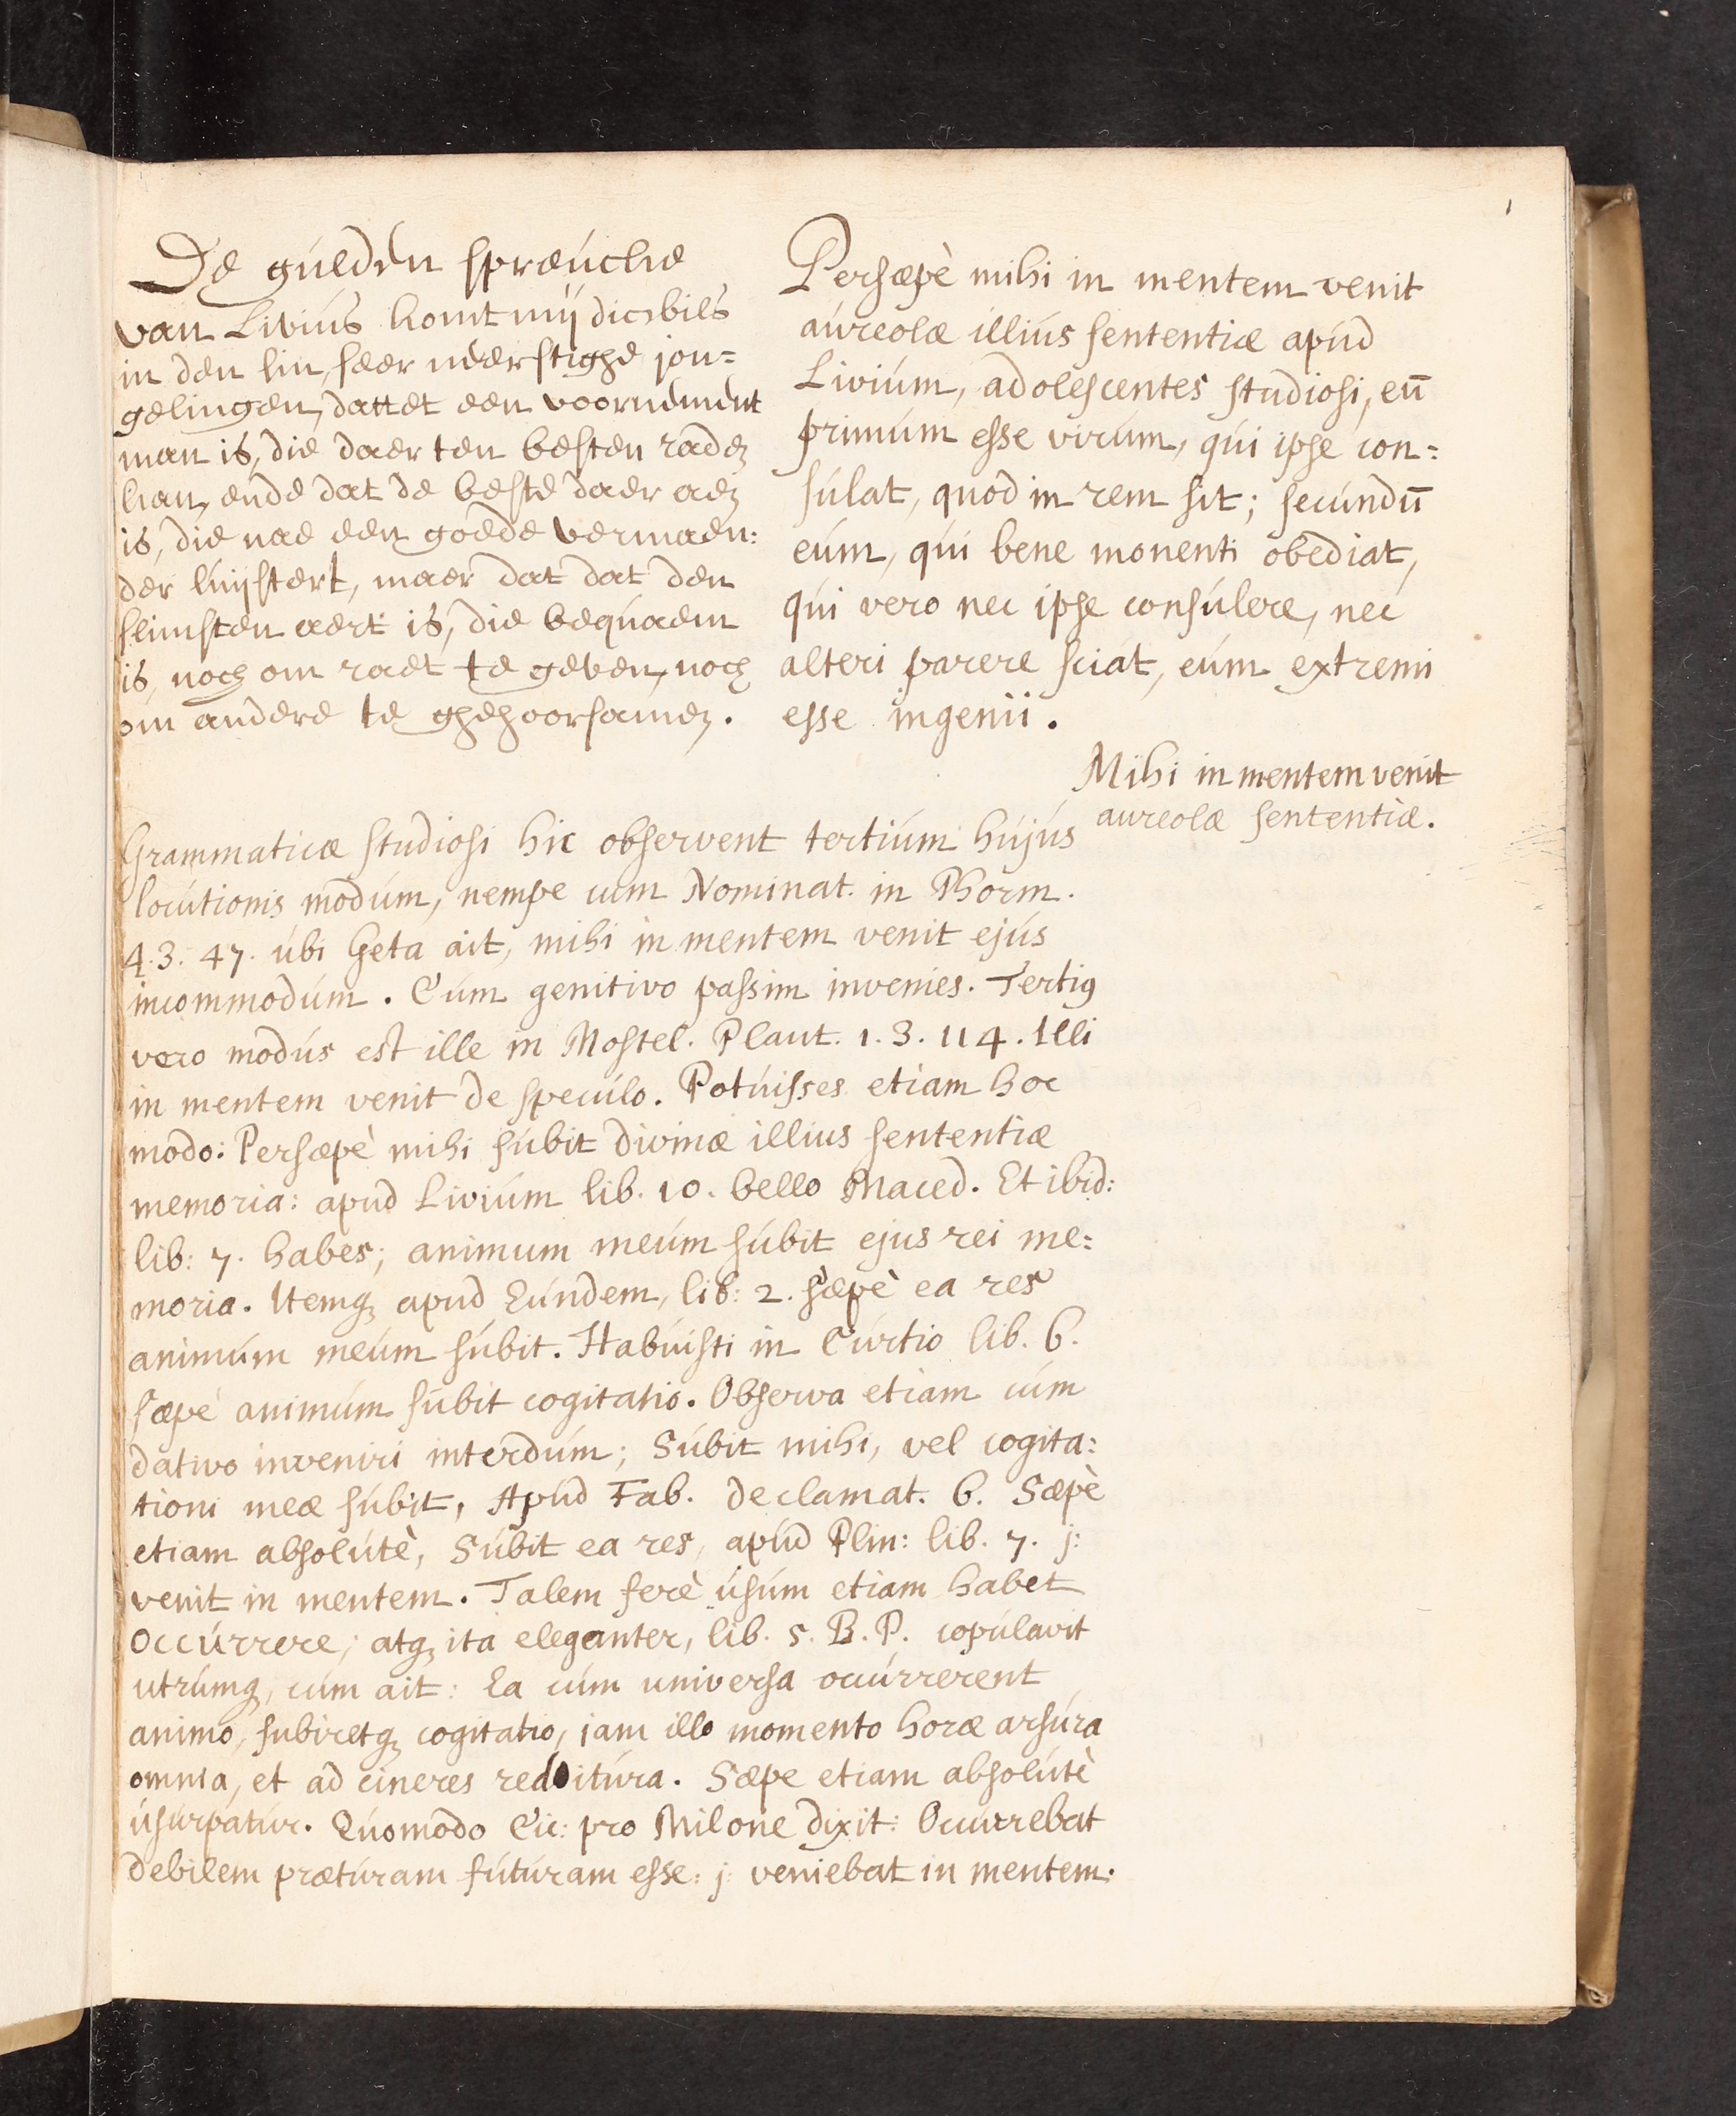 1
De gulden spreucke
van Livius komt mij dicwils
in den sin, seer neerstighe jon=
gelingen, dattet een voornement
man is, die daer ten besten raden
kan, ende dat de beste daer aen
is, die nae een goede vermaen:
der luijstert, maer dat dat den
slimsten aert is, die bequaem
is, noch om raet te geven, noch
om andere te ghehoorsamen.
Persæpè mihi in mentem venit
aureolæ illius sententiæ apud
Livium, adolescentes studiosi, eū
primum esse virum, qui ipse con=
sulat, quod in rem sit; secundū
eum, qui bene monenti obediat,
qui vero nec ipse consulere, nec
alteri parere sciat, eum extremi
esse ingenii.
Mihi in mentem venit
aureolæ sententiæ.
Grammaticæ studiosi hic observent tertium hujus
locutionis modum, nempe cum Nominat. in Phorm.
4.3.47. ubi Geta ait, mihi in mentem venit ejus
incommodum. Cum genitivo passim invenies. Tertiꝰ
vero modus est ille in Mostel. Plaut. 1.3.114. Illi
in mentem venit de speculo. Potuisses etiam hoc
modo: Persæpè mihi subit divinæ illius sententiæ
memoria: apud Livium lib. 10. bello Maced. Et ibid:
lib: 7. habes; animum meum subit ejus rei me=
moria. Itemq; apud Eundem, lib: 2. sæpè ea res
animum meum subit. Habuisti in Curtio lib. 6.
sæpè animum subit cogitatio. Observa etiam cum
dativo inveniri interdum; Subit mihi, vel cogita:
tioni meæ subit, Apud Fab. declamat. 6. Sæpè
etiam absolutè, Subit ea res, apud Plin: lib. 7. j:
venit in mentem. Talem ferè usum etiam habet
occurrere; atq; ita eleganter, lib. 5. B.P. copulavit
utrumq;, cum ait: Ea cum universa occurrerent
animo, subiretq; cogitatio, jam illo momento horæ arsura
omnia, et ad cineres reditura. Sæpe etiam absolutè
usurpatur. Quomodo Cic: pro Milone dixit: Occurrebat
debilem præturam futuram esse: j: veniebat in mentem.